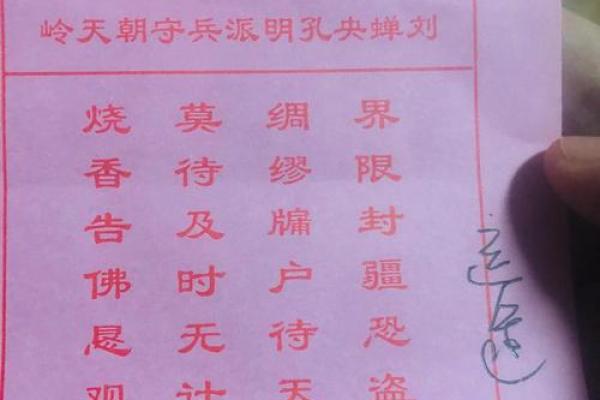 刘蝉央孔明派兵守朝天岭
界限封疆恐盗
绸缪牗户待天
莫待及时无计
烧香告佛恳观